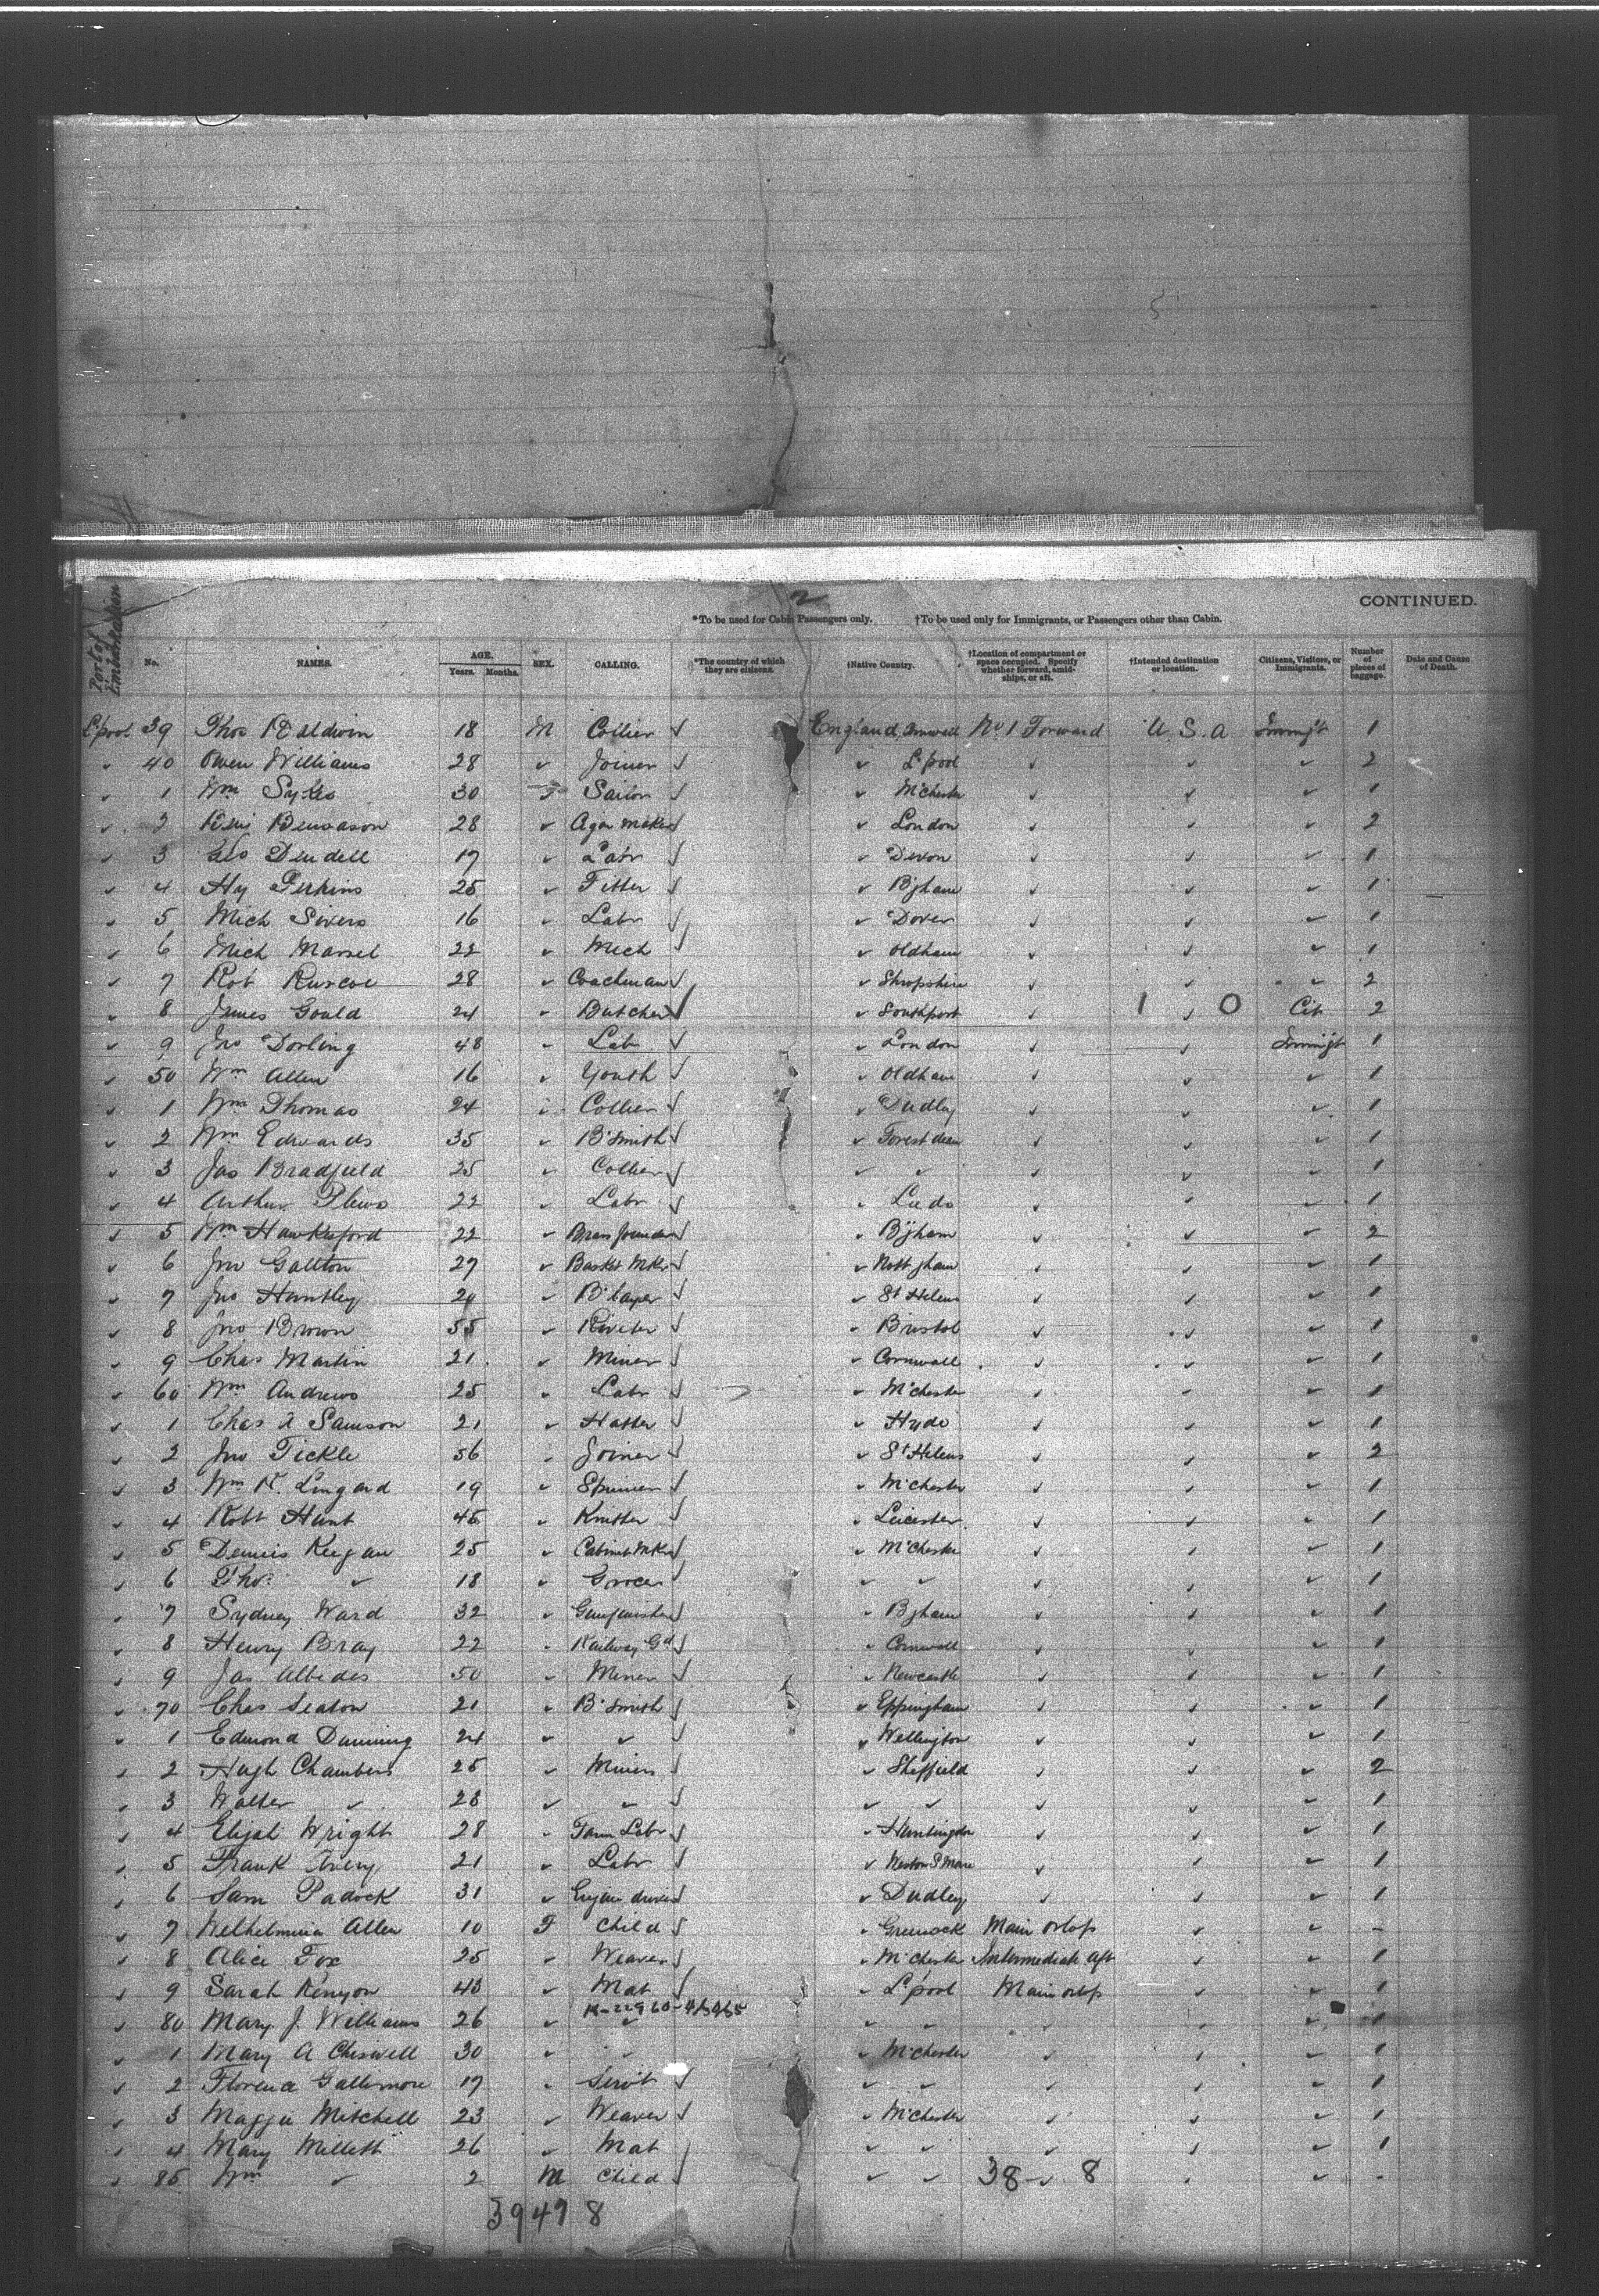 2
CONTINUED.
*To be used for Cabin Passengers only. †To be used only for Immigrants, or Passengers other than Cabin.
Port of Embarkation No. NAMES. AGE. Years. Months. SEX. CALLING. *The country of which they are citizens. †Native Country. †Location of compartment or space occupied. Specify whether forward, amidships, or aft. †Intended destination or location. Citizens, Visitors, or Immigrants. Number of pieces of baggage. Date and Cause of Death.
L'pool 39 Thos Baldwin 18 M Collier ✓ England No 1 Forward U.S.A Immigt 1
✓ 40 Owen Williams 28 ✓ Joiner ✓ ✓ L'pool ✓ ✓ ✓ 2
✓ 1 Wm Sykes 30 Sailor ✓ ✓ M'chester ✓ ✓ ✓ 1
✓ 2 Benj 28 ✓ ✓ London ✓ ✓ ✓ 2
✓ 3 Geo Dendell 17 ✓ Labr ✓ ✓ Devon ✓ ✓ ✓ 1
✓ 4 Hy Perkins 25 ✓ Fitter ✓ ✓ B'gham ✓ ✓ ✓ 1
✓ 5 Mich Sivers 16 ✓ Labr ✓ ✓ Dover ✓ ✓ ✓ 1
✓ 6 Mich Marsel 22 ✓ Mech ✓ ✓ Oldham ✓ ✓ ✓ 1
✓ 7 Rob Ruscoe 28 ✓ Coachman ✓ ✓ Shropshire ✓ ✓ ✓ 2
✓ 8 James Gould 24 ✓ Butcher ✓ ✓ Southport ✓ 1 ✓ 0 Cit 2
✓ 9 Jno Dorling 48 ✓ Lab ✓ ✓ London ✓ ✓ Immigt 1
✓ 50 Wm Allen 16 ✓ Youth ✓ ✓ Oldham ✓ ✓ ✓ 1
✓ 1 Wm Thomas 24 ✓ Collier ✓ ✓ Dudley ✓ ✓ ✓ 1
✓ 2 Wm Edwards 35 ✓ B'Smith ✓ ✓ Forest dean ✓ ✓ ✓ 1
✓ 3 Jas Bradfield 25 ✓ Collier ✓ ✓ ✓ ✓ ✓ ✓ 1
✓ 4 Arthur Plews 22 ✓ Labr ✓ ✓ Leeds ✓ ✓ ✓ 1
✓ 5 Wm Hawkesford 22 ✓ Brass founder ✓ ✓ B'gham ✓ ✓ ✓ 2
✓ 6 Jno Gallton 27 ✓ Basket Mker ✓ ✓ Nott'gham ✓ ✓ ✓ 1
✓ 7 Jno Huntley ✓ B'layer ✓ ✓ St Helens ✓ ✓ ✓ 1
✓ 8 Jno Brown 55 ✓ Riveter ✓ ✓ Bristol ✓ ✓ ✓ 1
✓ 9 Chas Martin 21 ✓ Miner ✓ ✓ Cornwall ✓ ✓ ✓ 1
✓ 60 Wm Andrews 25 ✓ Labr ✓ ✓ M'chester ✓ ✓ ✓ 1
✓ 1 Chas A Samson 21 ✓ Hatter ✓ ✓ Hyde ✓ ✓ ✓ 1
✓ 2 Jno Tickle 56 ✓ Joiner ✓ ✓ St Helens ✓ ✓ ✓ 2
✓ 3 Wm H. Lingard 19 ✓ Spinner ✓ ✓ M'chester ✓ ✓ ✓ 1
✓ 4 Robt Hunt 45 ✓ Knitter ✓ ✓ Leicester ✓ ✓ ✓ 1
✓ 5 Dennis Keegan 25 ✓ Cabinet Mker ✓ ✓ M'Chester ✓ ✓ ✓ 1
✓ 6 Tho: ✓ 18 ✓ Grocer ✓ ✓ ✓ ✓ ✓ ✓ 1
✓ 7 Sydney Ward 32 ✓ Gunfinisher ✓ ✓ B'gham ✓ ✓ ✓ 1
✓ 8 Henry Bray 22 ✓ Railway Gd ✓ ✓ Cornwall ✓ ✓ ✓ 1
✓ 9 Jas Albedes 50 ✓ Miner ✓ ✓ Newcastle ✓ ✓ ✓ 1
✓ 70 Chas Seaton 21 ✓ B'Smith ✓ ✓ Eppingham ✓ ✓ ✓ 1
✓ 1 Edmond Dunning 24 ✓ ✓ ✓ ✓ Wellington ✓ ✓ ✓ 1
✓ 2 Hugh Chambers 25 ✓ Miners ✓ ✓ Sheffield ✓ ✓ ✓ 2
✓ 3 Walter ✓ 23 ✓ ✓ ✓ ✓ ✓ ✓ ✓ ✓ 1
✓ 4 Elijah Wright 28 ✓ Farm Labr ✓ ✓ Huntingdon ✓ ✓ ✓ 1
✓ 5 Frank Avery 21 ✓ Labr ✓ ✓ Weston S Mare ✓ ✓ ✓ 1
✓ 6 Sam Padock 31 ✓ Engine driver ✓ ✓ Dudley ✓ ✓ ✓ 1
✓ 7 Welhelmina Allen 10 F Child ✓ ✓ Greenock Main Orlop ✓ ✓ -
✓ 8 Alice Fox 25 ✓ Weaver ✓ ✓ M'chester Intermediate aft ✓ ✓ 1
✓ 9 Sarah Kenyon 43 ✓ Mat ✓ ✓ L'pool Main orlop ✓ ✓ 1
✓ 80 Mary J. Williams 26 ✓ ✓ ✓ ✓ ✓ ✓ ✓ 1
✓ 1 Mary A Cheswell 30 ✓ ✓ ✓ M'chester ✓ ✓ ✓ 1
✓ 2 Florence Gallemore 17 ✓ Servt ✓ ✓ ✓ ✓ ✓ ✓ 1
✓ 3 Maggie Mitchell 23 ✓ Weaver ✓ ✓ M'chester ✓ ✓ ✓ 1
✓ 4 Mary Millett 26 ✓ Mat ✓ ✓ ✓ ✓ ✓ ✓ 1
✓ 85 Wm ✓ 2 M Child ✓ ✓ ✓ 38 ✓ 8 ✓ ✓ -
3947 8